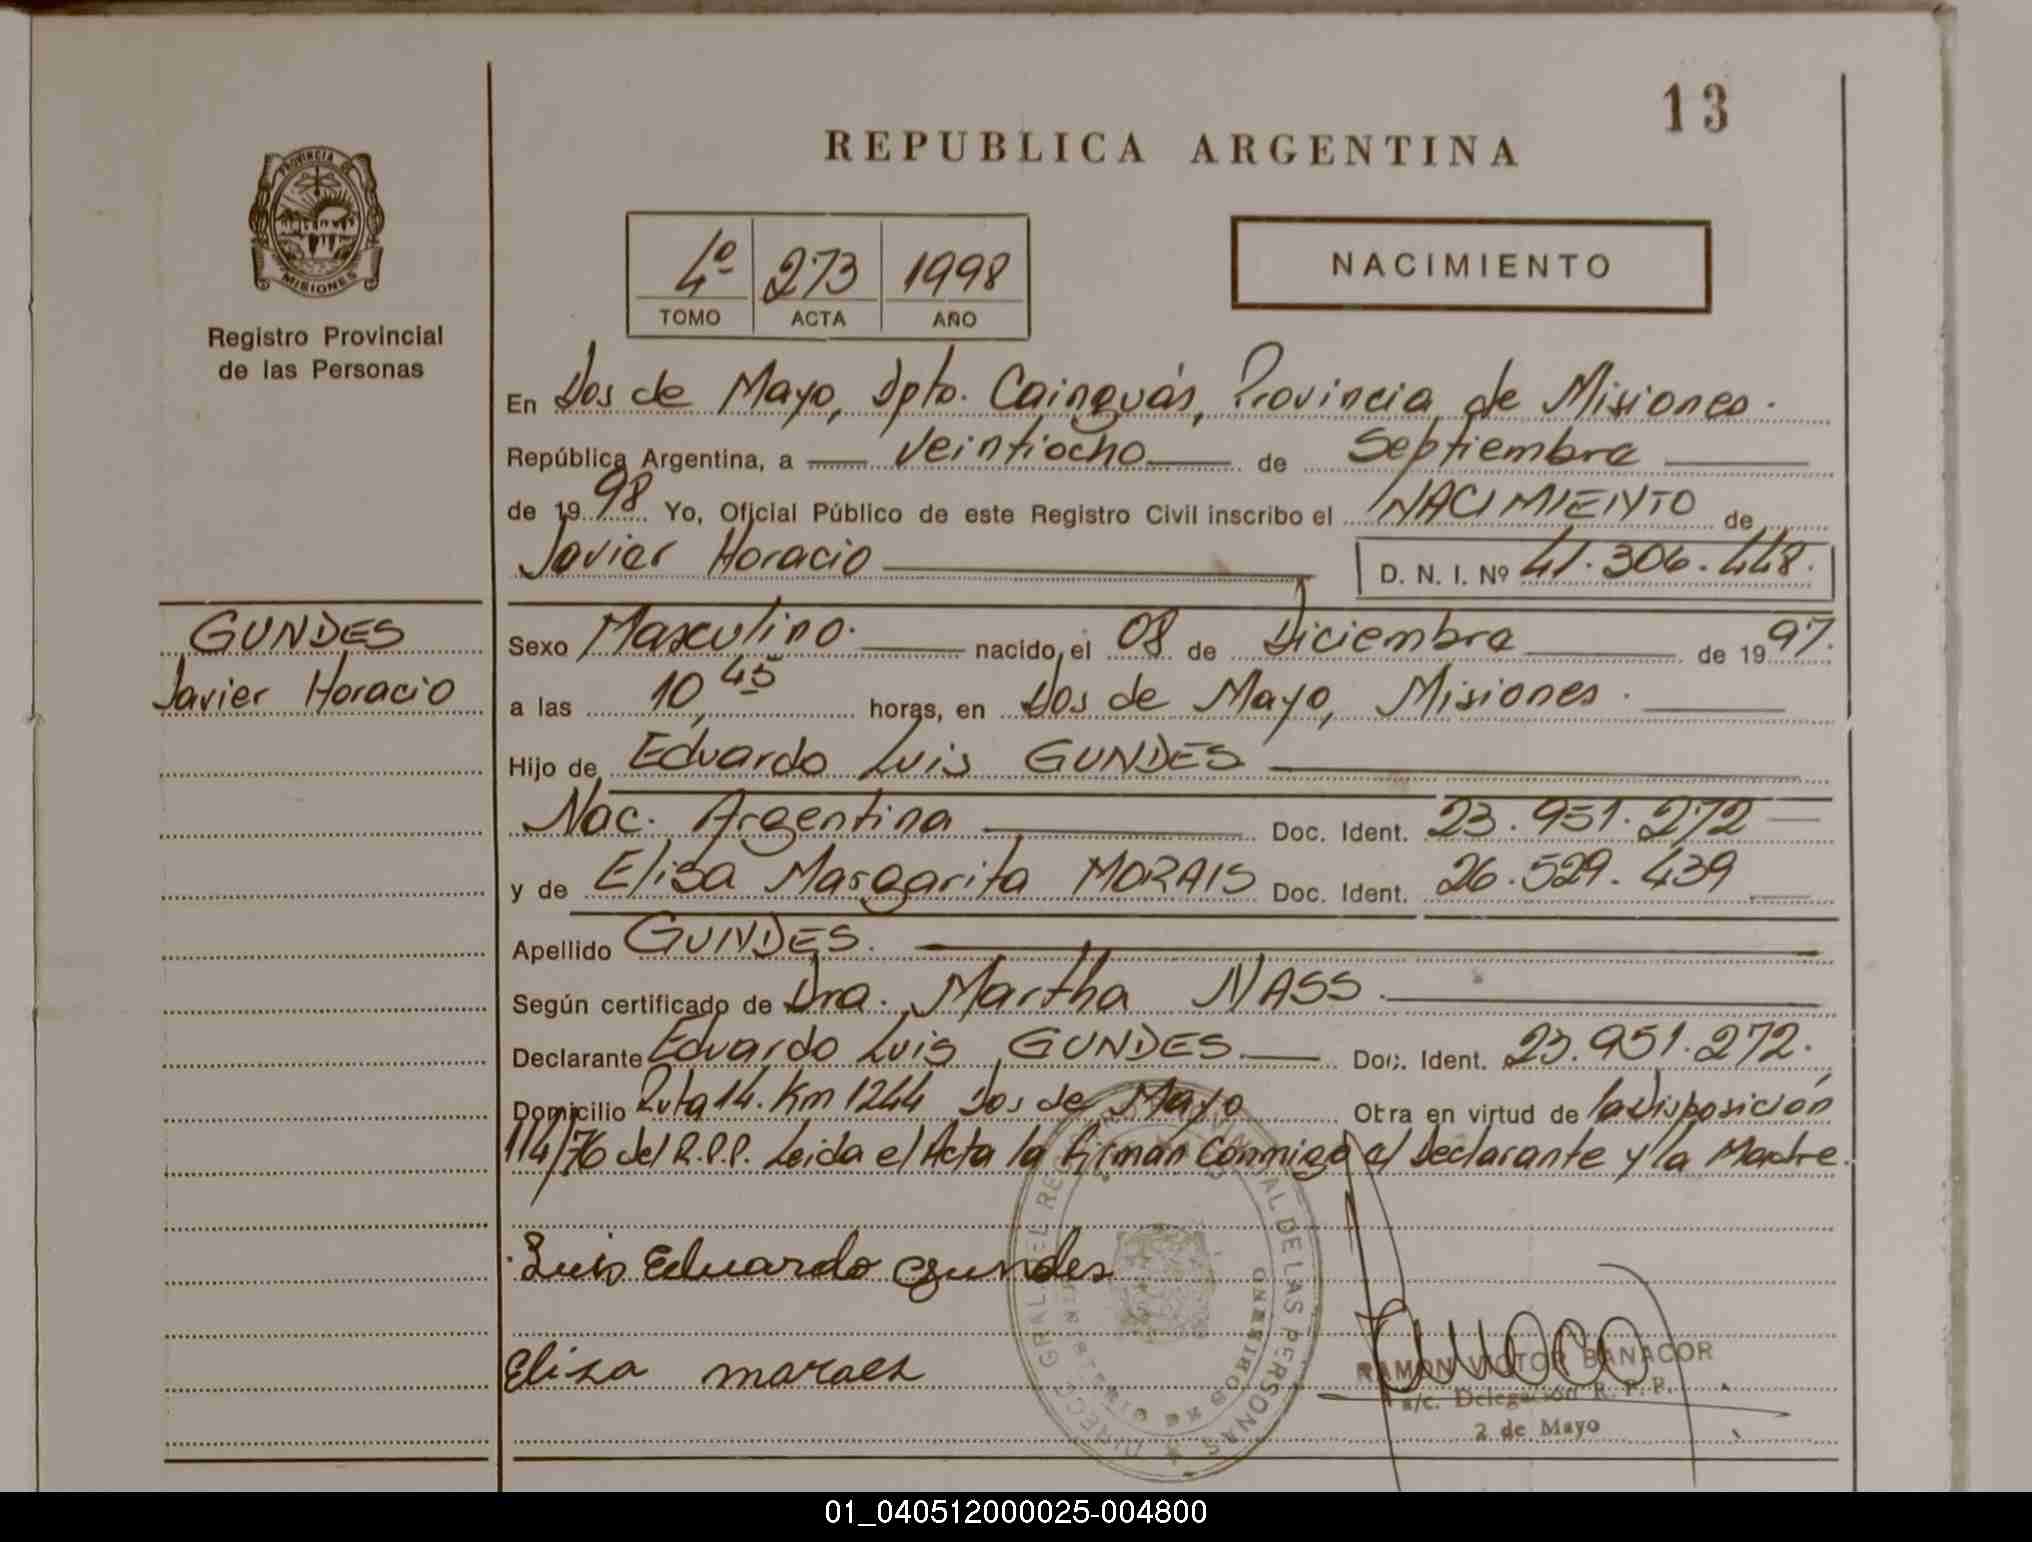 13
REPUBLICA ARGENTINA
PROVINCIA DE
MISIONES
Registro Provincial
de las Personas
4º 273 1998
TOMO ACTA AÑO
NACIMIENTO
En Dos de Mayo, Dpto. Cainguás, Provincia de Misiones.
República Argentina, a veintiocho de Septiembre
de 1998 Yo, Oficial Público de este Registro Civil inscribo el NACIMIENTO de
Javier Horacio D. N. I. Nº 41.306.448.
GUNDES
Javier Horacio
Sexo Masculino. nacido el 08 de Diciembre de 1997.
a las 10,45 horas, en Dos de Mayo, Misiones.
Hijo de Eduardo Luis GUNDES
Nac. Argentina Doc. Ident. 23.951.272
y de Elisa Margarita MORAIS Doc. Ident. 26.529.439
Apellido GUNDES.
Según certificado de Dra. Martha NASS.
Declarante Eduardo Luis GUNDES Doc. Ident. 23.951.272.
Domicilio Ruta 14. Km 1244 Dos de Mayo Otra en virtud de la Disposición
114/76 del R.P.P. Leida el Acta la firman Conmigo el Declarante y la Madre.
Luis Eduardo Gundes
Elisa maraes
RAMON VICTOR BANACOR
a/c. Delegación R. P. P.
2 de Mayo
01_040512000025-004800